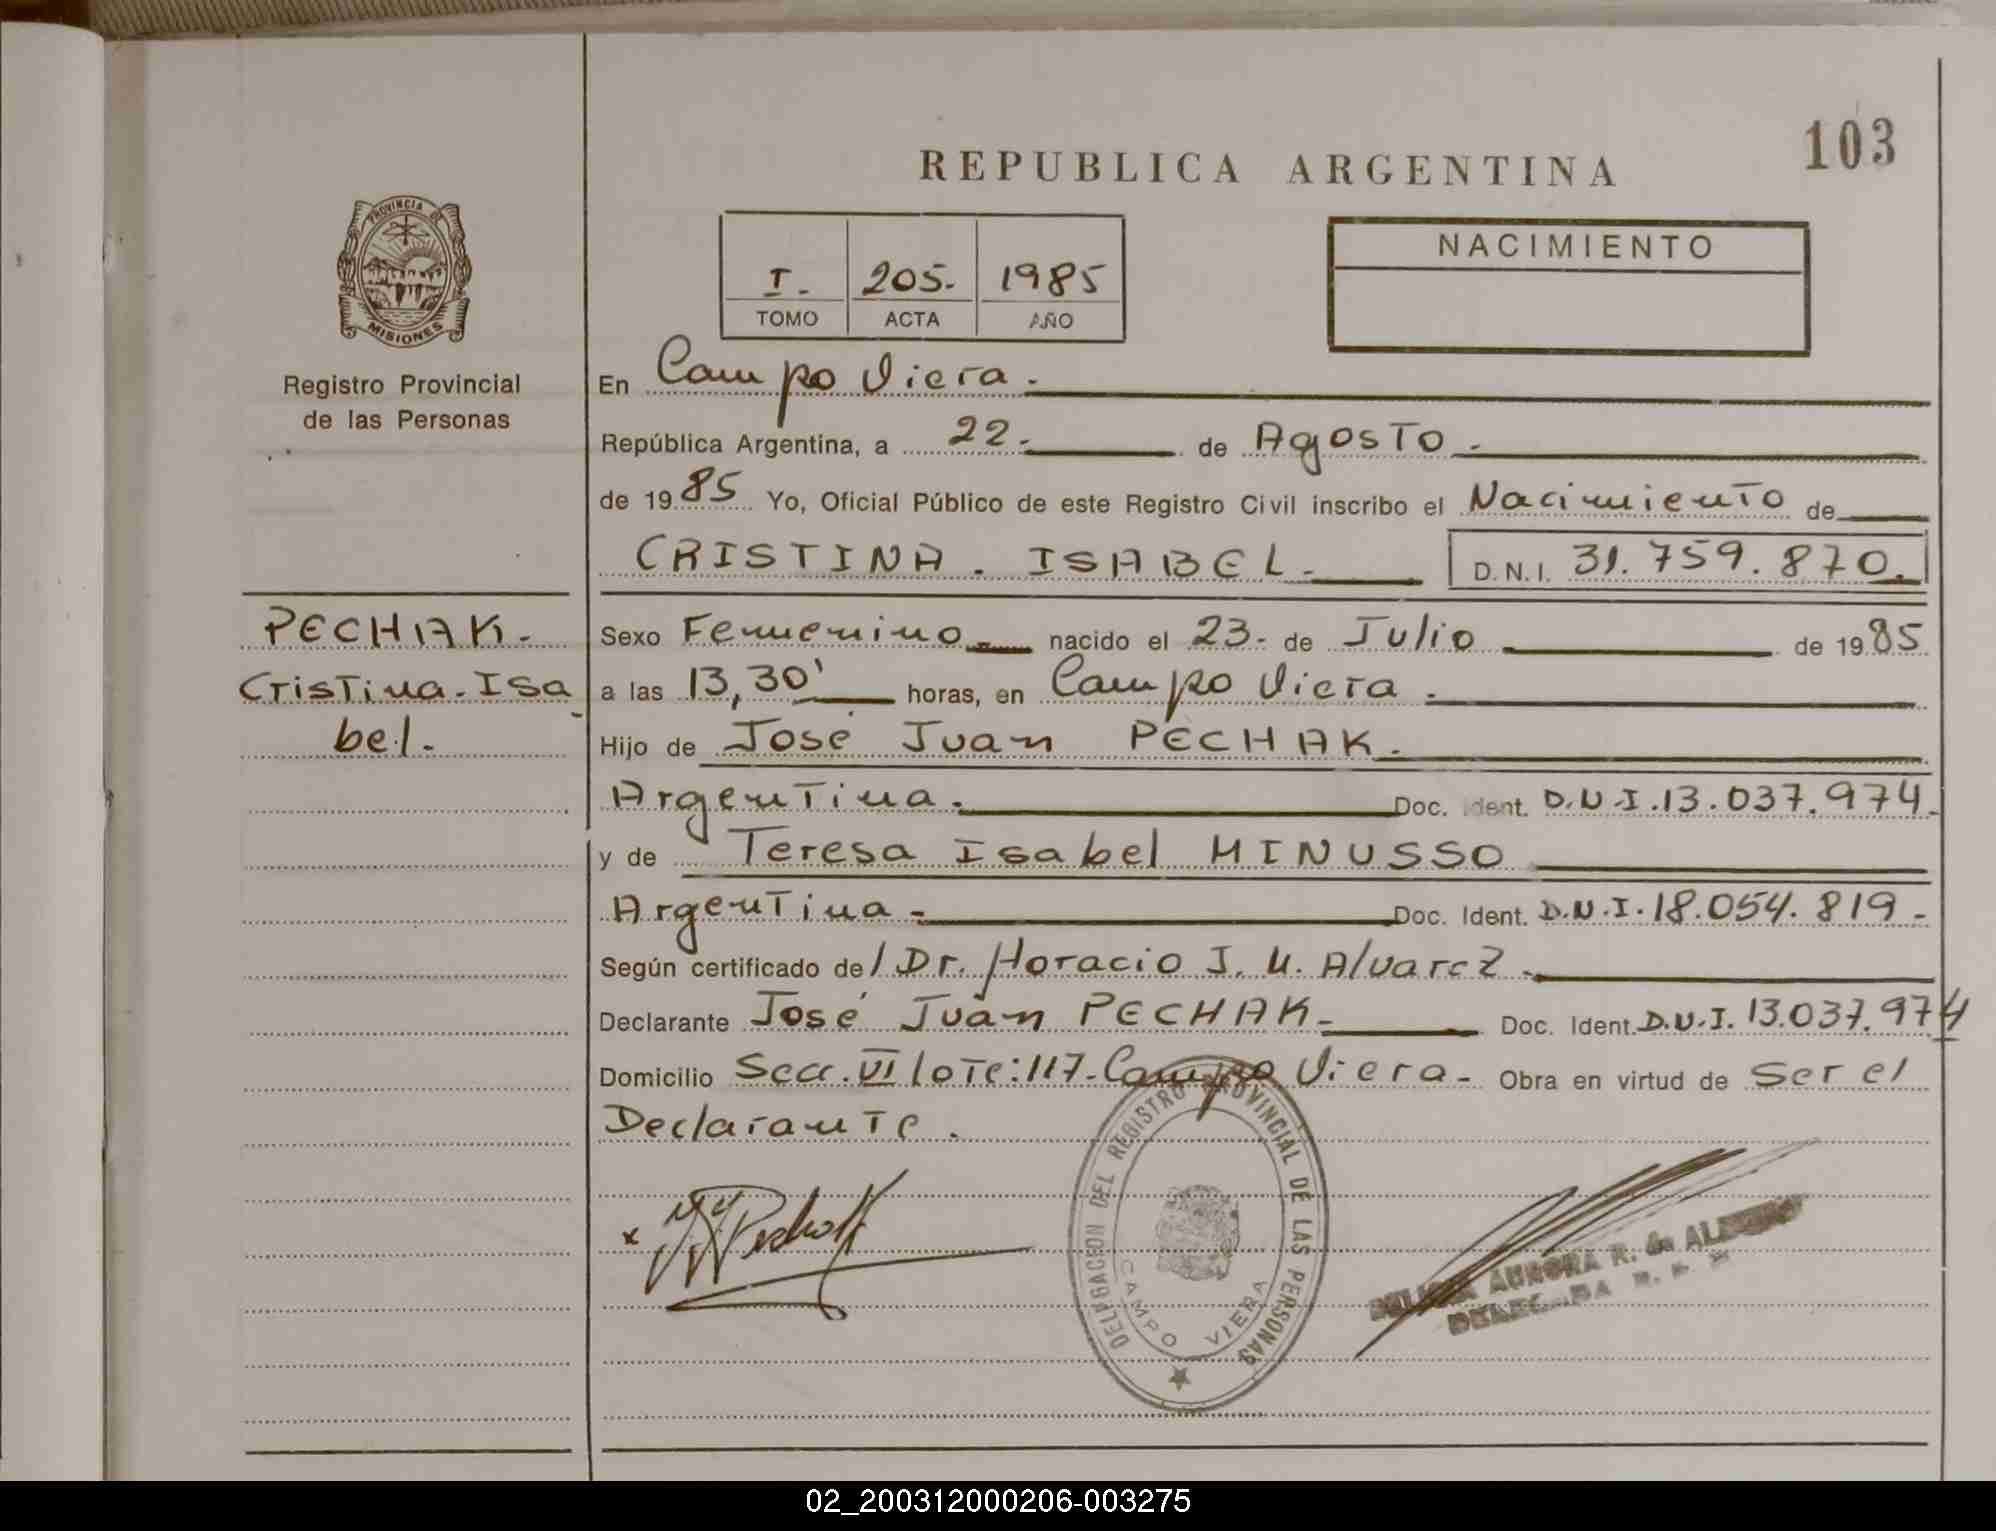 103
REPUBLICA ARGENTINA
PROVINCIA DE
MISIONES
Registro Provincial
de las Personas
I. 205. 1985
TOMO ACTA AÑO
NACIMIENTO
En Campo Viera.
República Argentina, a 22 de Agosto.
de 1985 Yo, Oficial Público de este Registro Civil inscribo el Nacimiento de
CRISTINA. ISABEL. D.N.I. 31.759.870.
PECHAK.
Cristina. Isa
bel.
Sexo Femenino nacido el 23 de Julio de 1985
a las 13,30' horas, en Campo Viera.
Hijo de José Juan PECHAK.
Argentina. Doc. Ident. D.N.I.13.037.974.
y de Teresa Isabel MINUSSO
Argentina Doc. Ident. D.N.I.18.054.819
Según certificado de/ Dr. Horacio J. M. Alvarez.
Declarante José Juan PECHAK Doc. Ident. D.N.I. 13.037.974
Domicilio Secc. VI lote:117-Campo Viera Obra en virtud de Ser el
Declarante.
DELEGACION DEL REGISTRO PROVINCIAL DE LAS PERSONAS
CAMPO VIERA
AURORA R. de
02_200312000206-003275